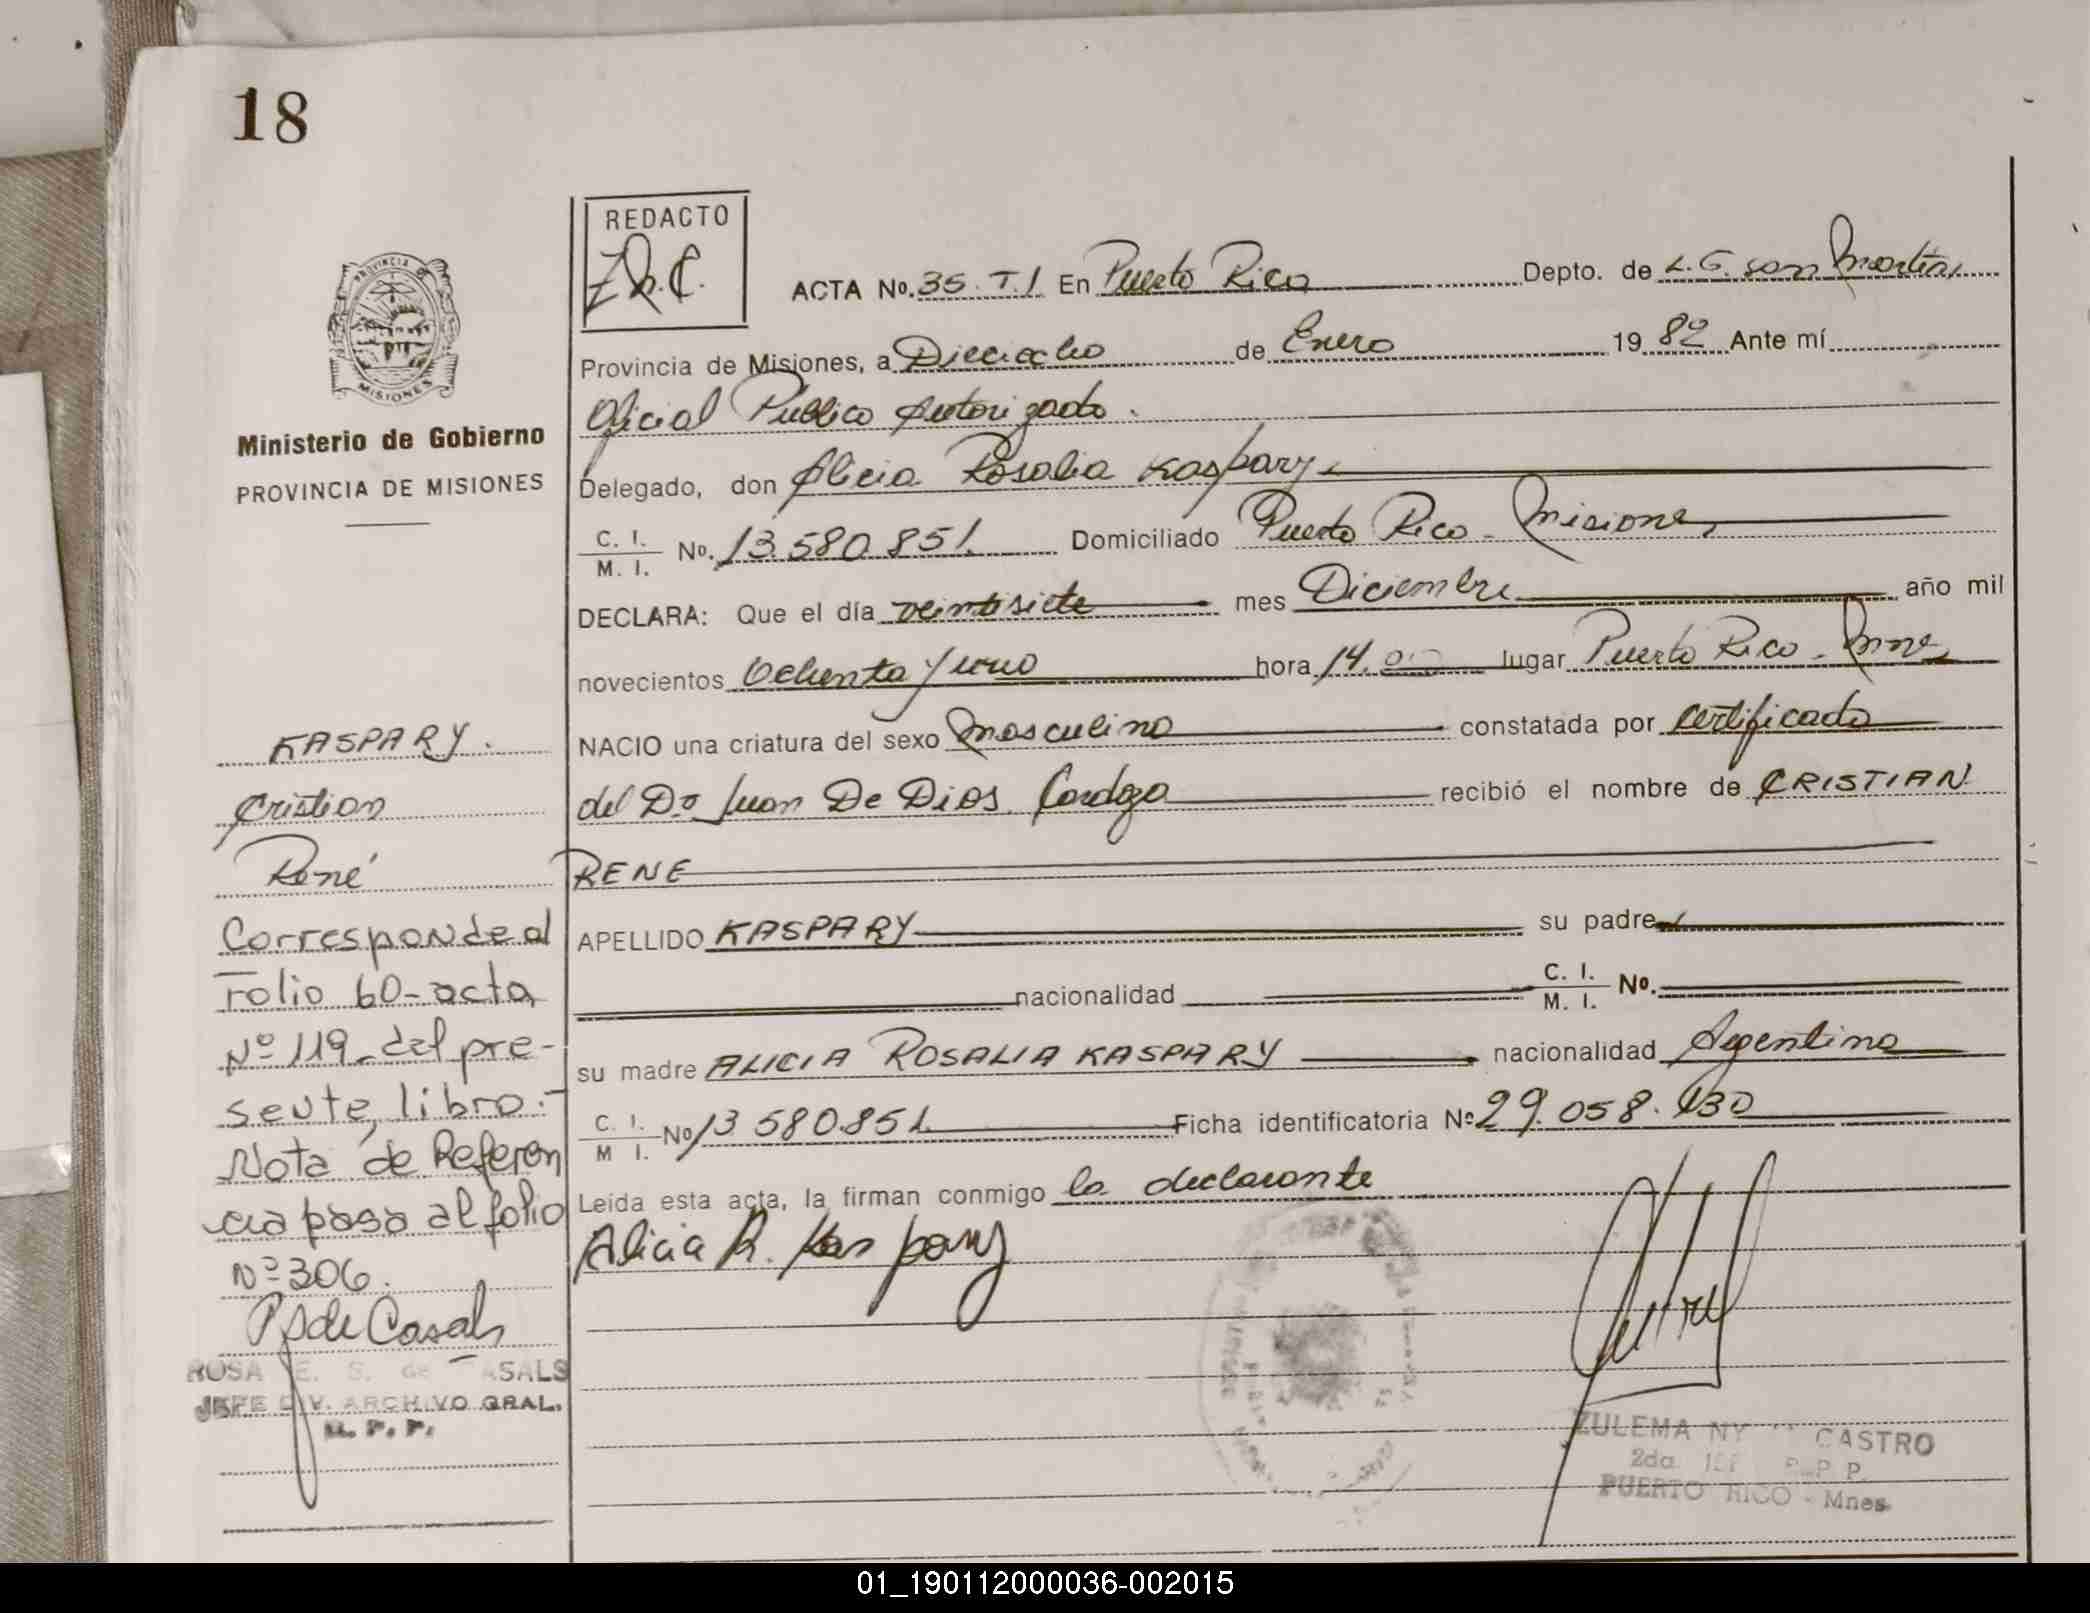 18
PROVINCIA DE
MISIONES
Ministerio de Gobierno
PROVINCIA DE MISIONES
KASPARY.
Cristian
René
Corresponde al
Folio 60-acta
Nº 119_del pre-
sente, libro.-
Nota de Referen
cia pasa al folio
Nº 306.
ROSA E. S. de CASALS
JEFE DIV. ARCHIVO GRAL.
R. P. P.
REDACTO
ACTA No. 35. T. I En Puerto Rico Depto. de L. G. san Martin
Provincia de Misiones, a Dieciocho de Enero 1982 Ante mí
Oficial Publico Autorizado.
Delegado, don Alicia Rosalia Kaspary
C. I.
M. I. No. 13.580.851. Domiciliado Puerto Rico - Misiones
DECLARA: Que el día veintisiete mes Diciembre año mil
novecientos Ochenta y uno hora 14.00 lugar Puerto Rico - Mnes
NACIO una criatura del sexo Masculino constatada por certificado
del Dr. Juan De Dios Cardozo recibió el nombre de CRISTIAN
RENE
APELLIDO KASPARY su padre
nacionalidad C. I.
M. I. No.
su madre ALICIA ROSALIA KASPARY nacionalidad Argentina
C. I.
M I. No 13 580.851. Ficha identificatoria Nº 29.058.130
Leída esta acta, la firman conmigo la declarante
Alicia R. Kaspary
ZULEMA NY CASTRO
2da R.P.P.
PUERTO RICO - Mnes
01_190112000036-002015